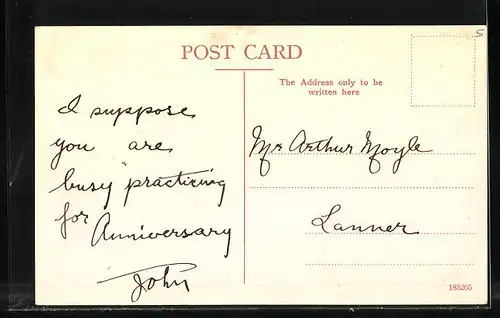 POST CARD
I suppose
you are
busy practicing
for Anniversary
John
The Address only to be
written here
Mr Arthur Moyle
Lanner
183205
S